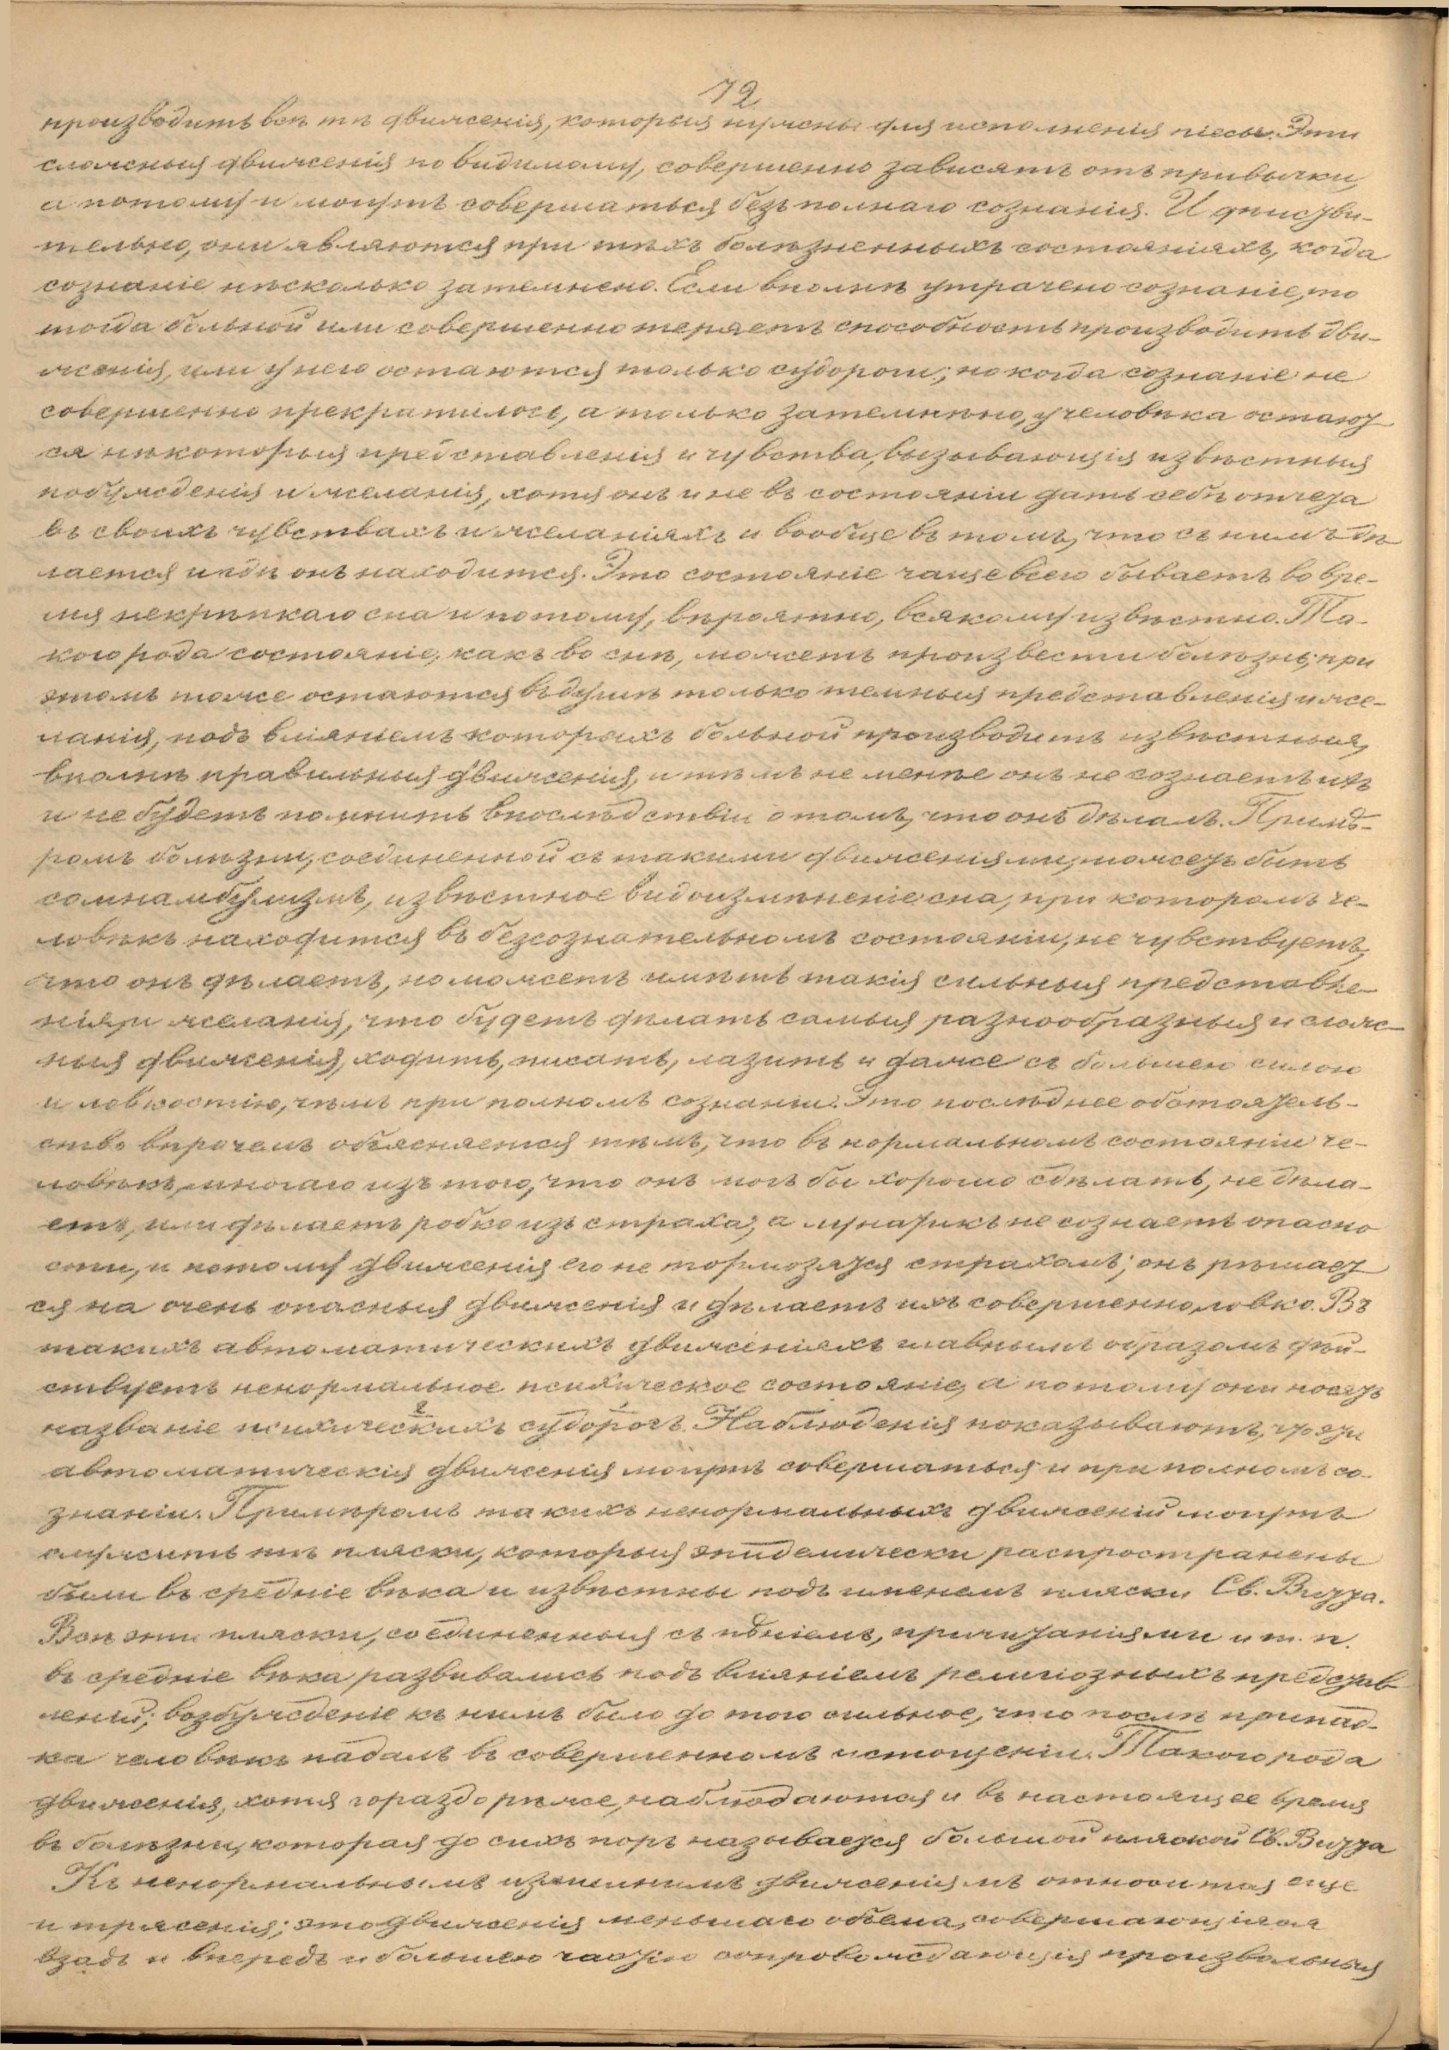 72
производитъ всѣ тѣ движенія, которыя нужны для исполненія піесы. Эти
сложныя движенія по видимому, совершенно зависятъ отъ привычки,
а потому и могутъ совершаться безъ полнаго сознанія. И дѣйстви-
тельно, они являются при тѣхъ болѣзненныхъ состояніяхъ, когда
сознаніе нѣсколько затемнено. Если вполнѣ утрачено сознаніе, то
тогда больной или совершенно теряетъ способность производить дви-
женія, или у него остаются только судороги; но когда сознаніе не
совершенно прекратилось, а только затемнѣно, у человѣка остают
ся нѣкоторыя представленія и чувства, вызывающія извѣстныя
побужденія и желанія, хотя онъ и не въ состояніи дать себѣ отчета
въ своихъ чувствахъ и желаніяхъ и вообще въ томъ, что съ нимъ дѣ
лается и гдѣ онъ находится. Это состояніе чаще всего бываетъ во вре-
мя некрѣпкаго сна и потому, вѣроятно, всякому извѣстно. Та-
кого рода состояніе, какъ во снѣ, можетъ произвести болѣзнь; при
этомъ тоже остаются въ душѣ только темныя представленія и же-
ланія, подъ вліяніемъ которыхъ больной производитъ извѣстныя,
вполнѣ правильныя движенія, и тѣмъ не менѣе онъ не сознаетъ ихъ
и не будетъ помнить впослѣдствіи о томъ, что онъ дѣлалъ. Примѣ-
ромъ болѣзни, соединенной съ такими движеніями, можетъ быть
сомнамбулизмъ, извѣстное видоизмѣненіе сна, при которомъ че-
ловѣкъ находится въ безсознательномъ состояніи, не чувствуетъ,
что онъ дѣлаетъ, но можетъ имѣть такія сильныя представле-
нія и желанія, что будетъ дѣлать самыя разнообразныя и слож-
ныя движенія, ходить, писать, лазить и даже съ большею силою
и ловкостію, чѣмъ при полномъ сознаніи. Это послѣднее обстоятель-
ство впрочемъ объясняется тѣмъ, что въ нормальномъ состояніи че-
ловѣкъ, многаго изъ того, что онъ могъ бы хорошо сдѣлать, не дѣла-
етъ, или дѣлаетъ робко изъ страха; а лунатикъ не сознаетъ опасно
сти, и потому движенія его не тормозятся страхомъ; онъ рѣшает
ся на очень опасныя движенія и дѣлаетъ ихъ совершенно ловко. Въ
такихъ автоматическихъ движеніяхъ главнымъ образомъ дѣй-
ствуетъ ненормальное психическое состояніе, а потому они носятъ
названіе психическихъ судорогъ. Наблюденія показываютъ, что эти
автоматическія движенія могутъ совершаться и при полномъ со-
знаніи. Примѣромъ такихъ ненормальныхъ движеній могутъ
служить тѣ пляски, которыя эпидемически распространены
были въ средніе вѣка и извѣстны подъ именемъ пляски Св. Витта.
Всѣ эти пляски, соединенныя съ пѣніемъ, причитаніями и т. п.
въ средніе вѣка развивались подъ вліяніемъ религіозныхъ представ
леній; возбужденіе къ нимъ было до того сильное, что послѣ припад-
ка человѣкъ падалъ въ совершенномъ истощеніи. Такого рода
движенія, хотя гораздо рѣже, наблюдаются и въ настоящее время
въ болѣзни, которая до сихъ поръ называется большой пляской Св. Витта
Къ ненормальнымъ излишнимъ движеніямъ относится еще
и трясенія; это движенія меньшаго объема, совершающіяся
взадъ и впередъ и большею частію сопровождающія произвольныя